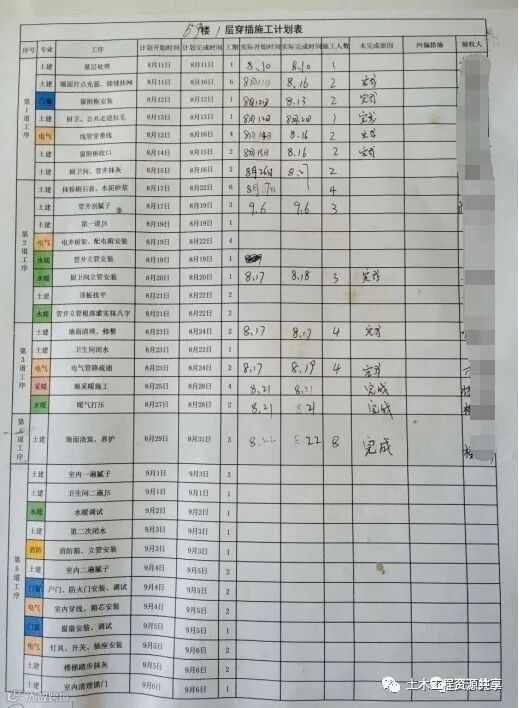 5#楼 1层穿插施工计划表
序号 专业 工序 计划开始时间 计划完成时间 工期 实际开始时间 实际完成时间 施工人数 未完成原因 纠偏措施 验收人
第1道工序
土建 基层处理 8月11日 8月11日 1 8.10 8.10 1
土建 墙面打点充筋、接缝挂网 8月11日 8月16日 6 8月11日 8.16 2 完成
门窗 窗附框安装 8月12日 8月12日 1 8月12日 8.13 2 完成
土建 厨卫、公共走道拉毛 8月13日 8月13日 1 8月12日 1 完成
电气 线管穿重线 8月13日 8月16日 4 8月14日 8.16 2 完成
土建 窗附框收口 8月14日 8月14日 2 8月15日 8.16 2 完成
土建 厨卫间、管井抹灰 8月15日 8月16日 2 8月26日 8.27 2
第2道工序
土建 抹粉刷石膏、水泥砂浆 8月17日 8月22日 6 4
土建 管井刮腻子 8月19日 8月19日 3 9.6 9.6 3
土建 第一道JS 8月19日 8月19日 1
电气 电井桥架、配电箱安装 8月19日 8月22日 4
水暖 管井立管安装 8月19日 8月19日 1
水暖 厨卫间立管安装 8月20日 8月20日 1 8.17 8.18 3 完成
土建 顶板找平 8月21日 8月22日 2
水暖 管井立管根部灌实抹八字 8月21日 8月21日 2
第3道工序
土建 地面清理、修整 8月23日 8月24日 2 8.17 4 完成
土建 卫生间闭水 8月23日 8月23日 1
电气 电气管路疏通 8月23日 8月24日 2 8.17 8.19 4 完成
采暖 地采暖施工 8月25日 8月28日 4 8.21 8.21 完成
水暖 暖气打压 8月27日 8月28日 2 8.21 8.21 完成
第4道工序
土建 地面浇筑、养护 8月29日 8月31日 3 8.22 8.22 8 完成
第5道工序
土建 室内一遍腻子 9月1日 9月3日 3
土建 卫生间二遍JS 9月1日 9月1日 1
水暖 水暖调试 9月2日 9月2日 1
土建 第二次闭水 9月3日 9月3日 1
消防 消防箱、立管安装 9月3日 9月3日 1
土建 室内二遍腻子 9月4日 9月5日 2
门窗 户门、防火门安装、调试 9月4日 9月5日 2
电气 室内穿线、箱芯安装 9月4日 9月5日 2
门窗 窗扇安装、调试 9月5日 9月5日 1
电气 灯具、开关、插座安装 9月5日 9月6日 2
土建 楼梯踏步抹灰 9月5日 9月6日 2
土建 室内清理锁门 9月6日 9月6日 1
土木工程资源共享